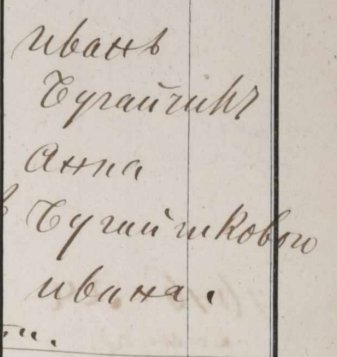 иванъ
Бугайчикъ
Анна
Бугайчикового
ивана.